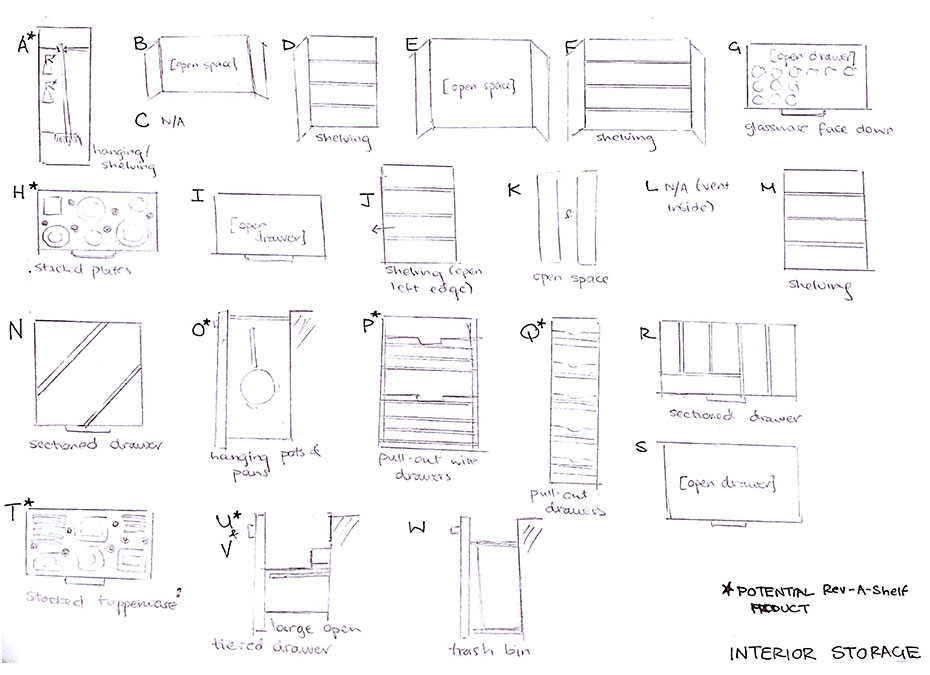 A*
hanging/
shelving
B
[open space]
C N/A
D
shelving
E
[open space]
F
shelving
G
[open drawer]
glassware face down
H*
stacked plates
I
[open
drawer]
J
shelving (open
left edge)
K
&
open space
L N/A (vent
inside)
M
shelving
N
sectioned drawer
O*
hanging pots &
pans
P*
pull-out wire
drawers
Q*
pull-out
drawers
R
sectioned drawer
S
[open drawer]
T*
stacked tupperware
U*
&
V
large open
tiered drawer
W
trash bin
* POTENTIAL Rev-A-Shelf
PRODUCT
INTERIOR STORAGE